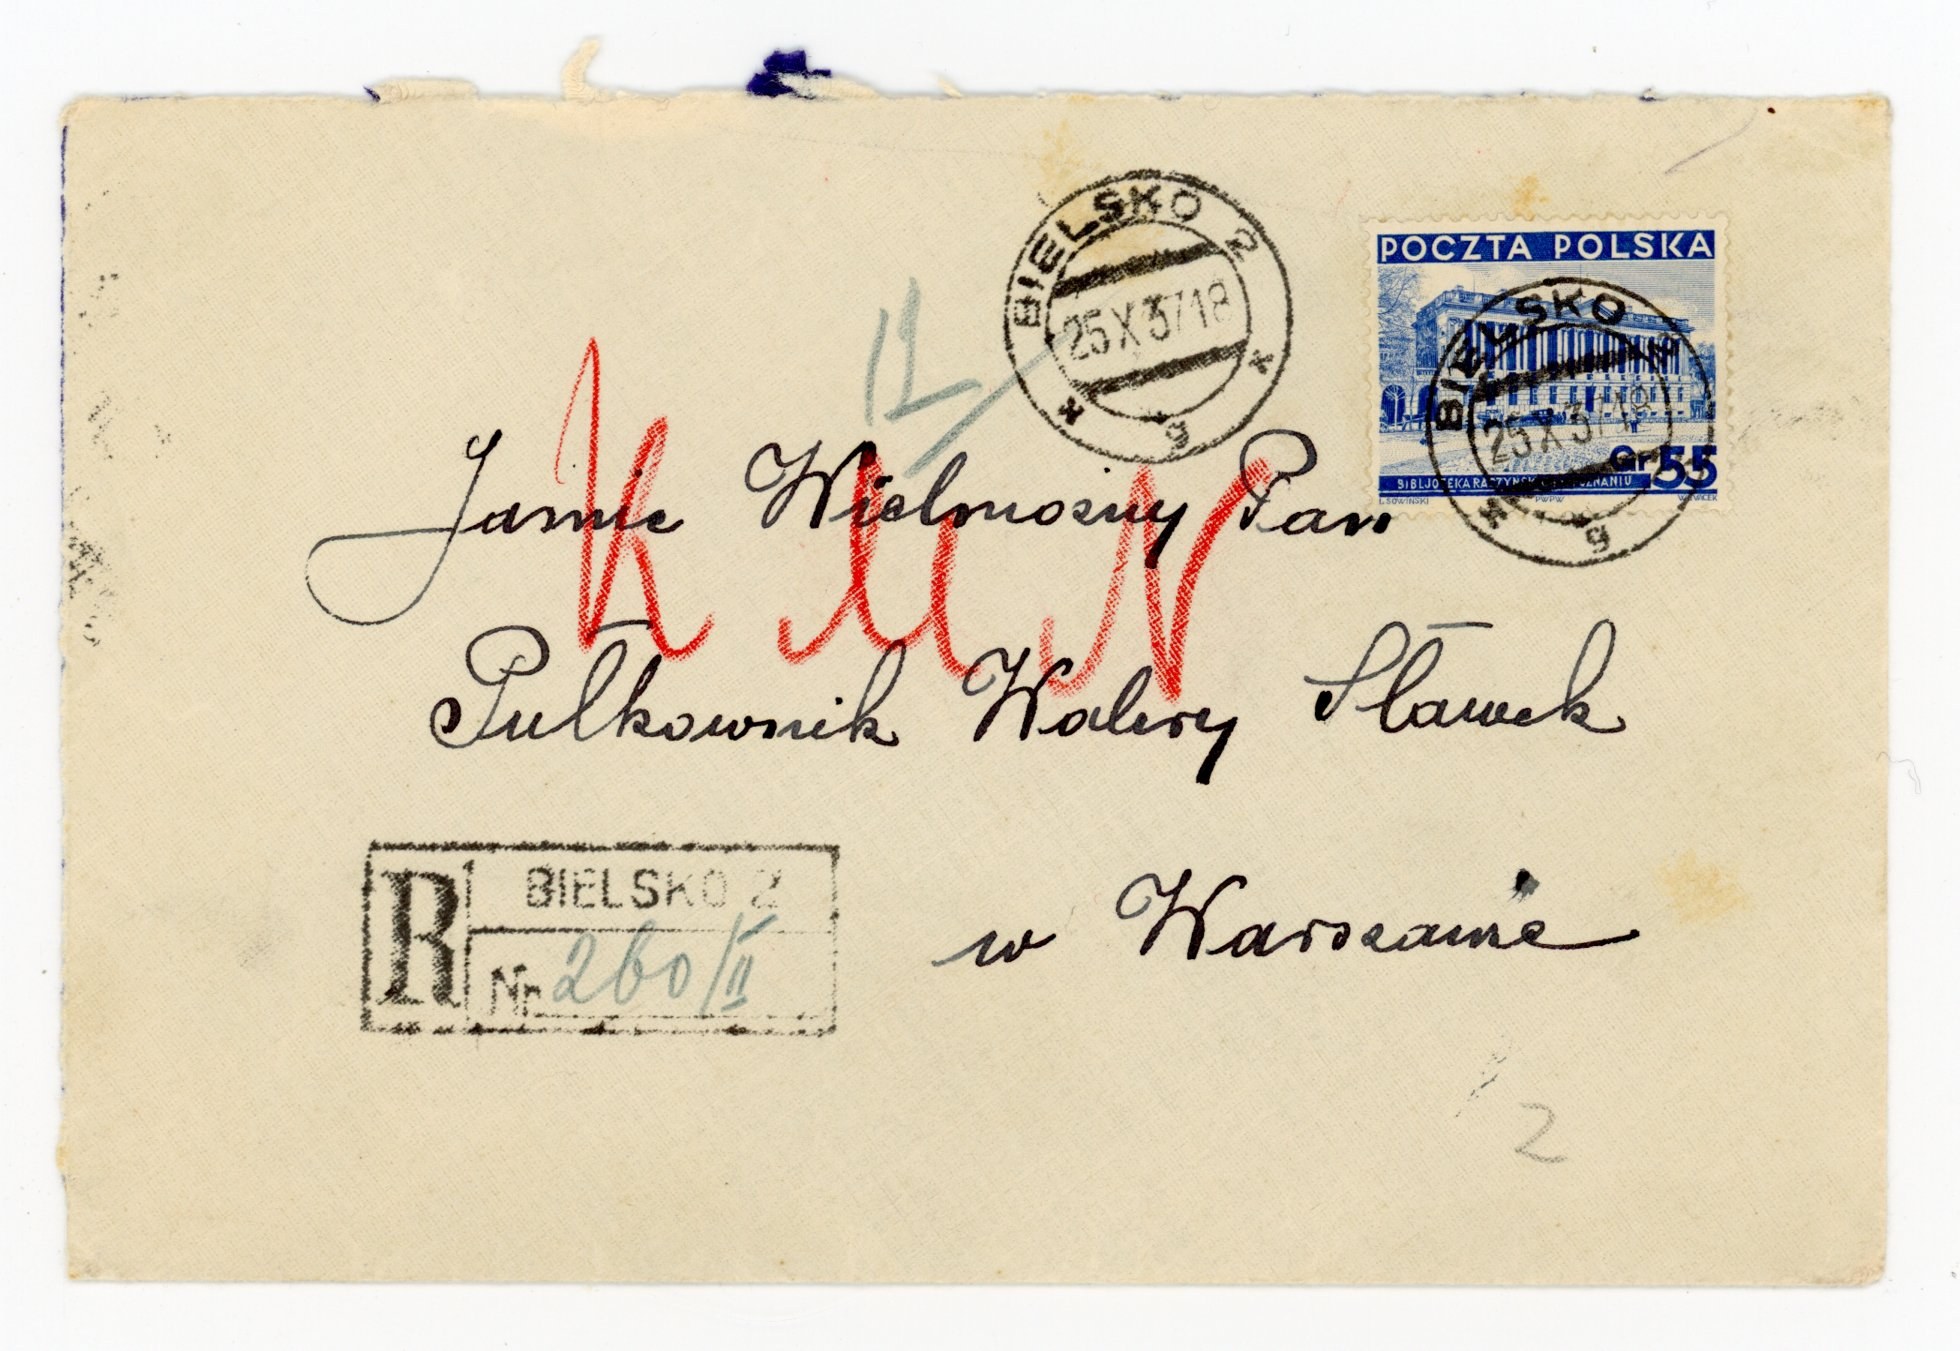 BIELSKO 2
25 X 37 18
* g *
POCZTA POLSKA
Gr 55
BIBLJOTEKA RACZYŃSKICH W POZNANIU
L. SOWIŃSKI PWPW W. VACEK
BIELSKO 2
25 X 37 18
* g *
12
Jaśnie Wielmożny Pan
K M N
Pułkownik Walery Sławek
w Warszawie
R BIELSKO 2
Nr. 260/II
2